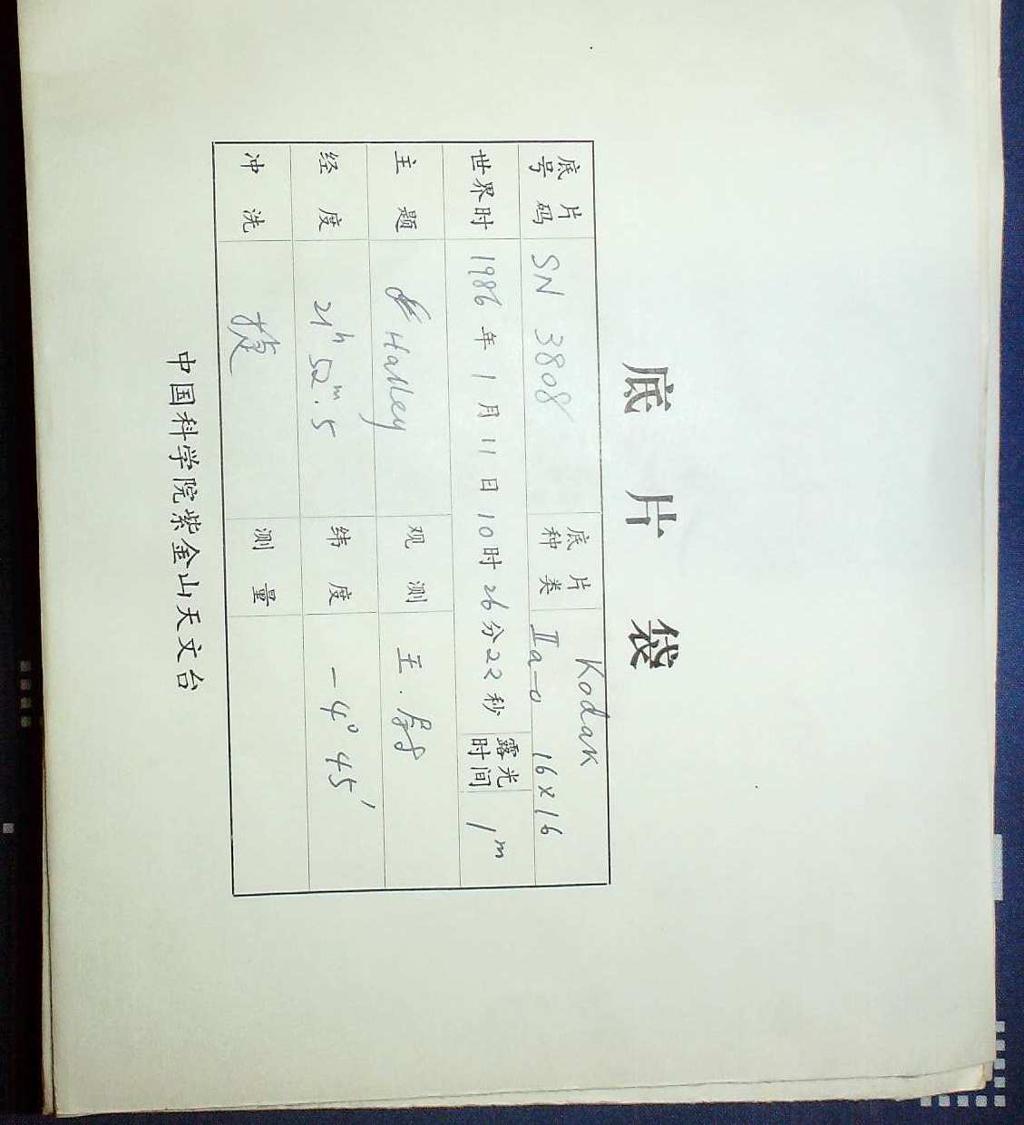 底片袋
底片号码 SN 3808 底片种类 Kodak IIa-O 16×16
世界时 1986年1月11日10时26分22秒 露光时间 1m
主题 Halley 观测 王.
经度 21h 52m.5 纬度 -4° 45′
冲洗 捷 测量
中国科学院紫金山天文台